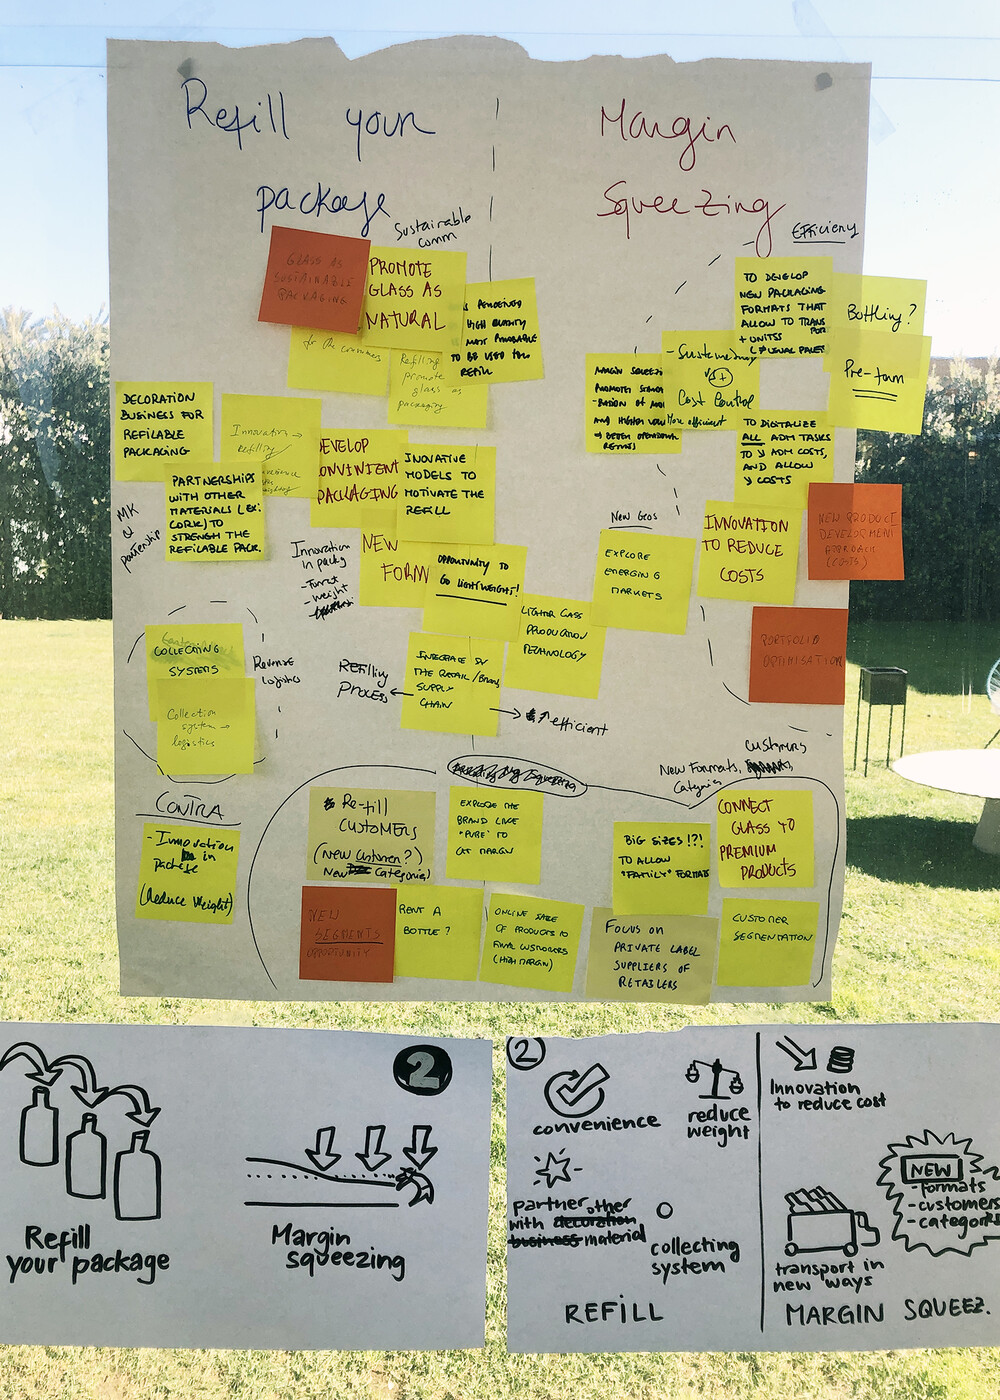 Refill your
package
Margin
Squeezing
Sustainable
comm
Efficiency
GLASS AS
SUSTAINABLE
PACKAGING
PROMOTE
GLASS AS
NATURAL
for the consumers
Refilling
promote
glass as
packaging
HIGH QUALITY
TO BE USED
REFILL
DECORATION
BUSINESS FOR
REFILABLE
PACKAGING
Innovation →
Refilling
PARTNERSHIPS
WITH OTHER
MATERIALS (EX:
CORK) TO
STRENGH THE
REFILABLE PACK.
MK
&
partnership
DEVELOP
CONVINIENT
PACKAGING
INOVATIVE
MODELS TO
MOTIVATE THE
REFILL
NEW
FORM
Innovation
in packg
- weight
OPPORTUNITY TO
GO LIGHTWEIGHT!
LIGHTER GLASS
PRODUCTION
TECHNOLOGY
INTEGRATE IN
THE RETAIL/BRAND
SUPPLY
CHAIN
Refilling
Process
efficient
COLLECTING
SYSTEMS
Collection
system →
logistics
Reverse
logistics
TO DEVELOP
NEW PACKAGING
FORMATS THAT
ALLOW TO TRANSPOR
+ UNITS
(≠ USUAL PALES
Bottling?
Pre-form
- Sustainability
VS +
Cost Control
More efficient
MARGIN SQUEEZI
TO DIGITALIZE
ALL ADM TASKS
TO ↘ ADM COSTS,
AND ALLOW
↘ COSTS
New Geos
EXPLORE
EMERGING
MARKETS
INNOVATION
TO REDUCE
COSTS
NEW PRODUCT
DEVELOPMENT
APPROACH
(COSTS)
PORTFOLIO
OPTIMISATION
CONTRA
- Innovation
in
package
(Reduce Weight)
New Formats,
Customers
Categories
Re-fill
CUSTOMERS
(New customer?)
New Categories!
EXPLORE THE
BRAND LIKE
"PURE" TO
GET MARGIN
BIG SIZES!?!
TO ALLOW
"FAMILY" FORMATS
CONNECT
GLASS TO
PREMIUM
PRODUCTS
NEW
SEGMENTS
OPPORTUNITY
RENT A
BOTTLE?
ONLINE SALE
OF PRODUCTS TO
FINAL CUSTOMERS
(HIGH MARGIN)
FOCUS ON
PRIVATE LABEL
SUPPLIERS OF
RETAILERS
CUSTOMER
SEGMENTATION
2
Refill
your package
Margin
squeezing
2
convenience
reduce
weight
partner other
with decoration
business material
collecting
system
REFILL
Innovation
to reduce cost
NEW
- formats
- customers
- categories
transport in
new ways
MARGIN SQUEEZ.